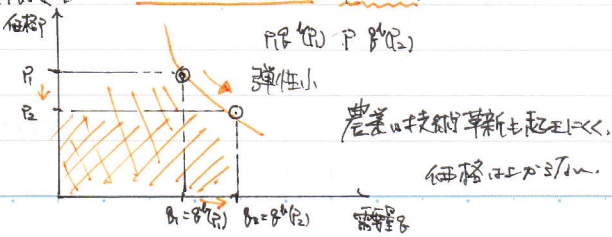 価格P
P₁g^h(P₁) P g^h(P₂)
P₁
弾性小
P₂
農業は技術革新も起こりにくく、
価格は上がらない
g₁=g^h(P₁) g₂=g^h(P₂) 需要量g